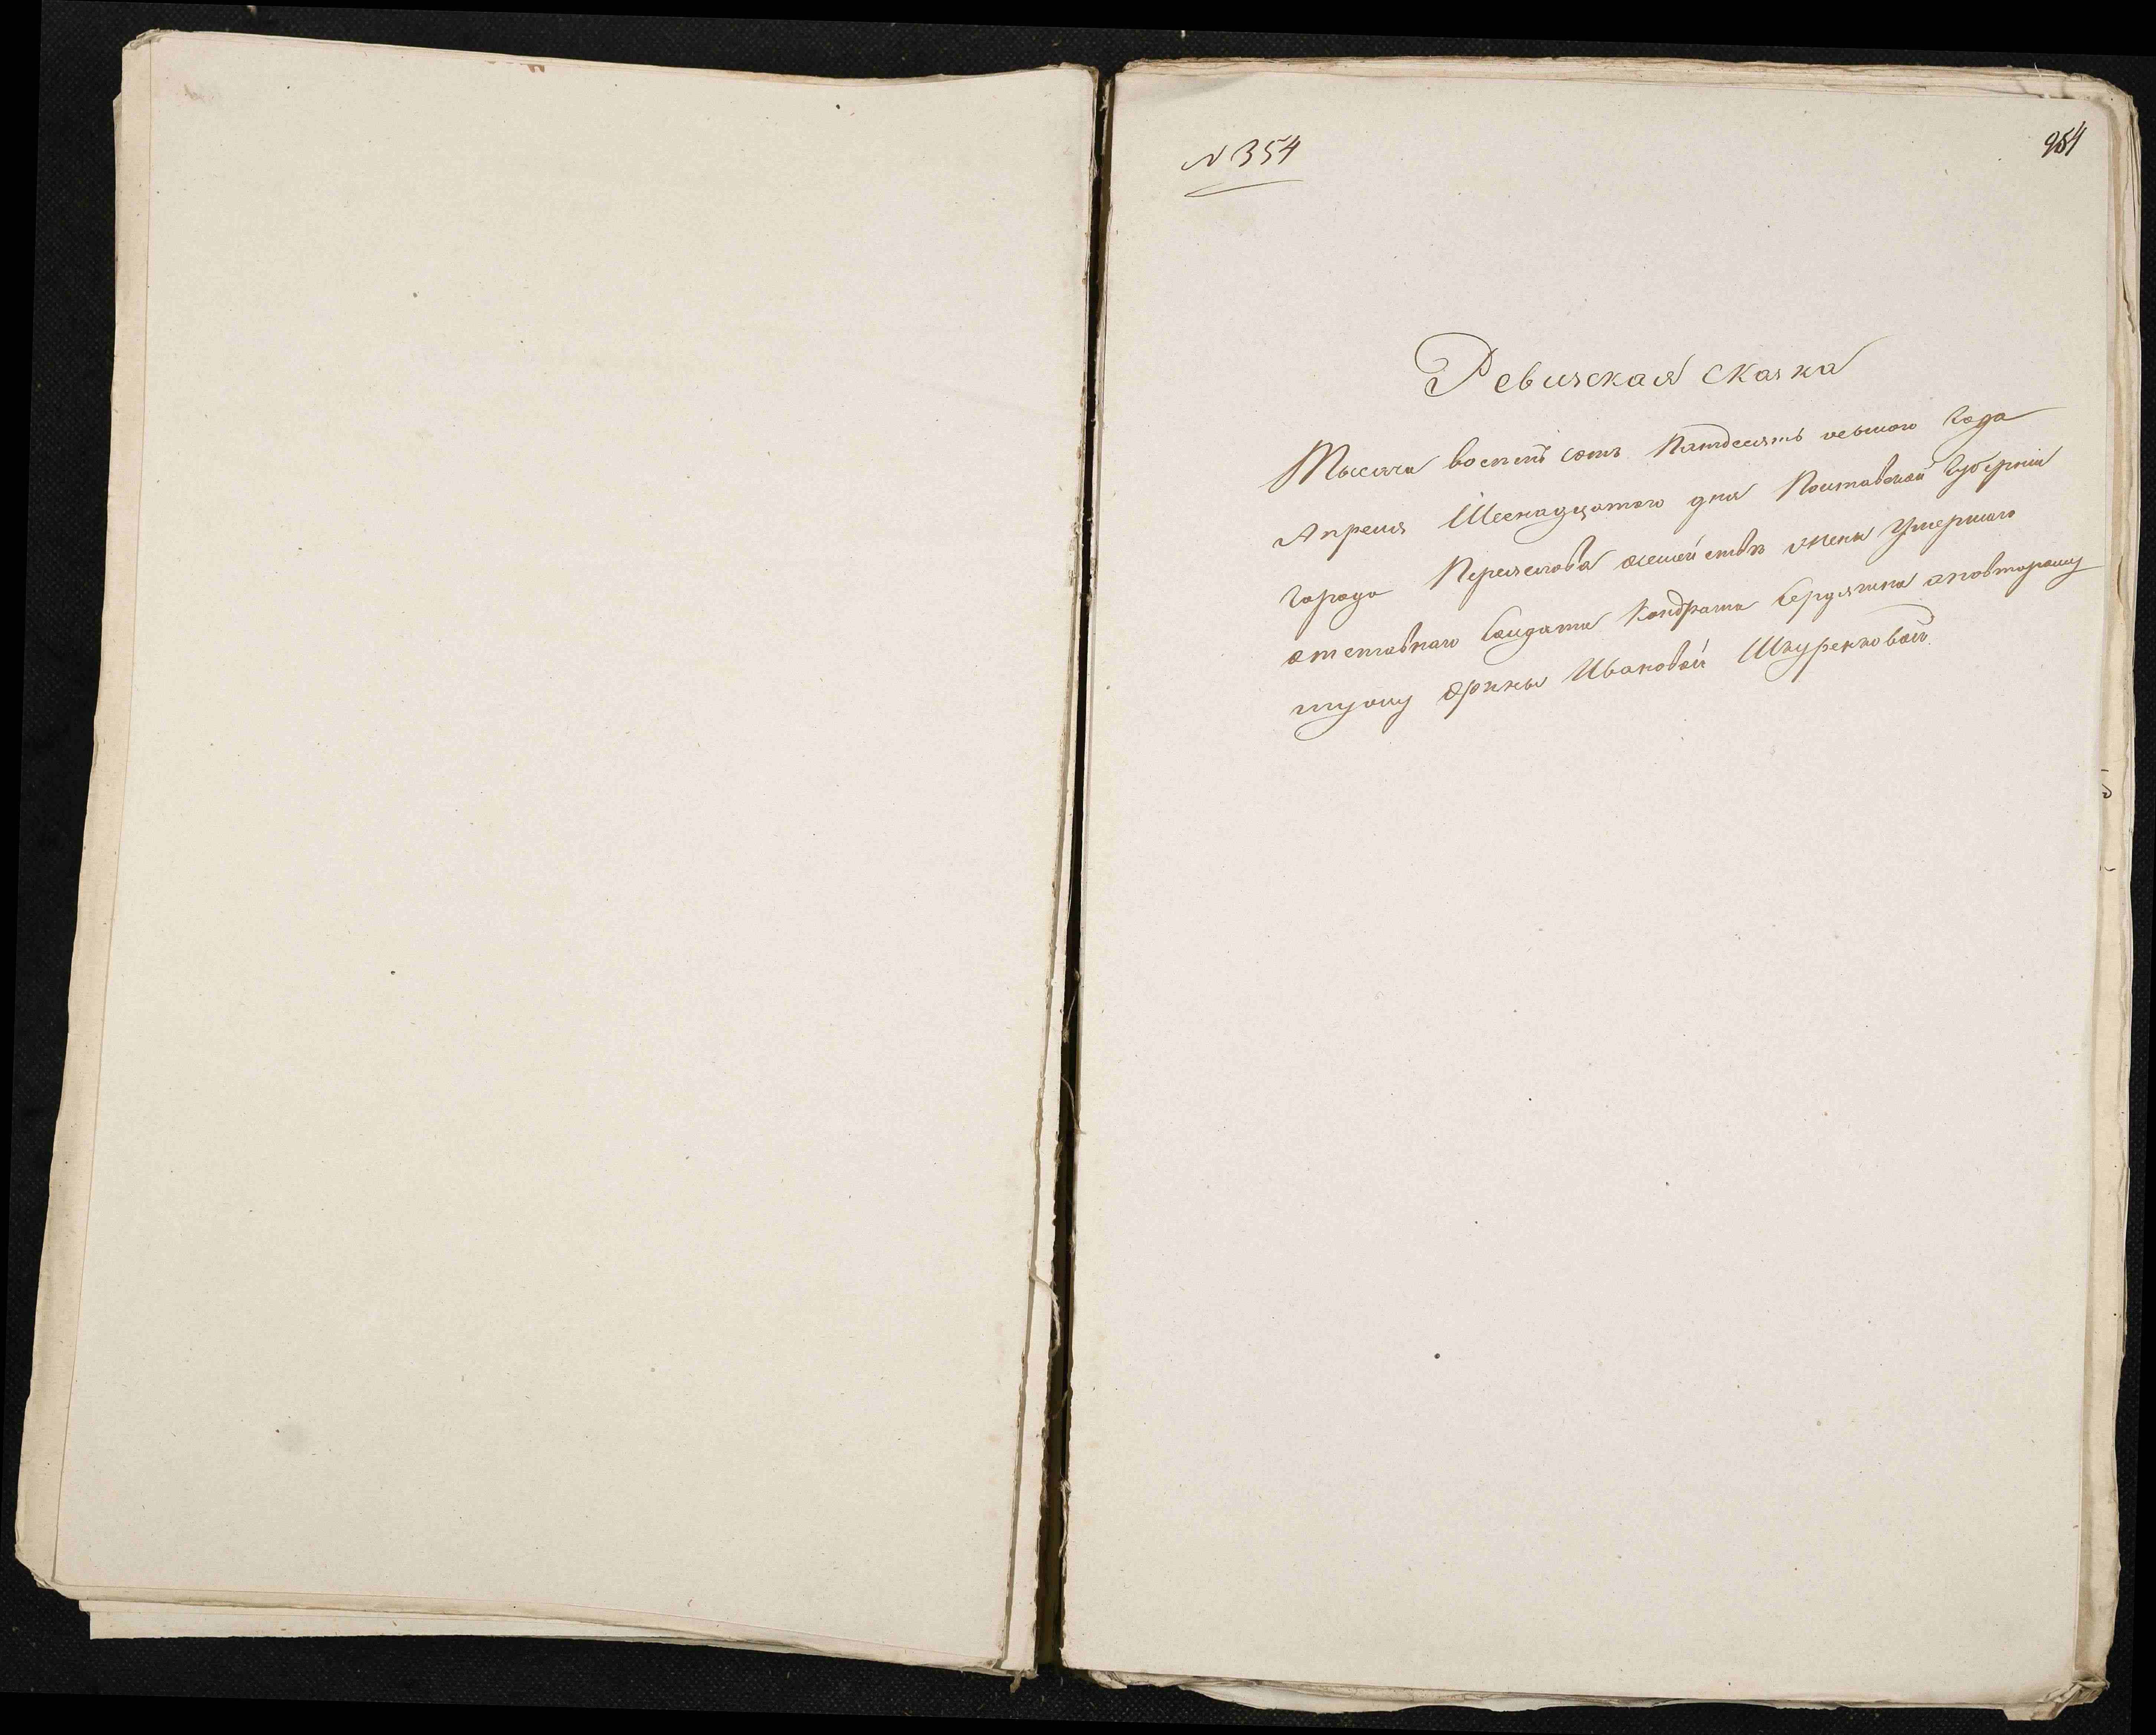 N 354
954
Ревизская сказка
Тысяча восемь сотъ пятдесятъ осьмого года
Апреля Шеснадцатого дня Полтавской Губернии
города Переяслова жены умершаго
отставнаго Солдата Кондрата Сердягина аповторому
мужу Орины Ивановой Шкуренковой